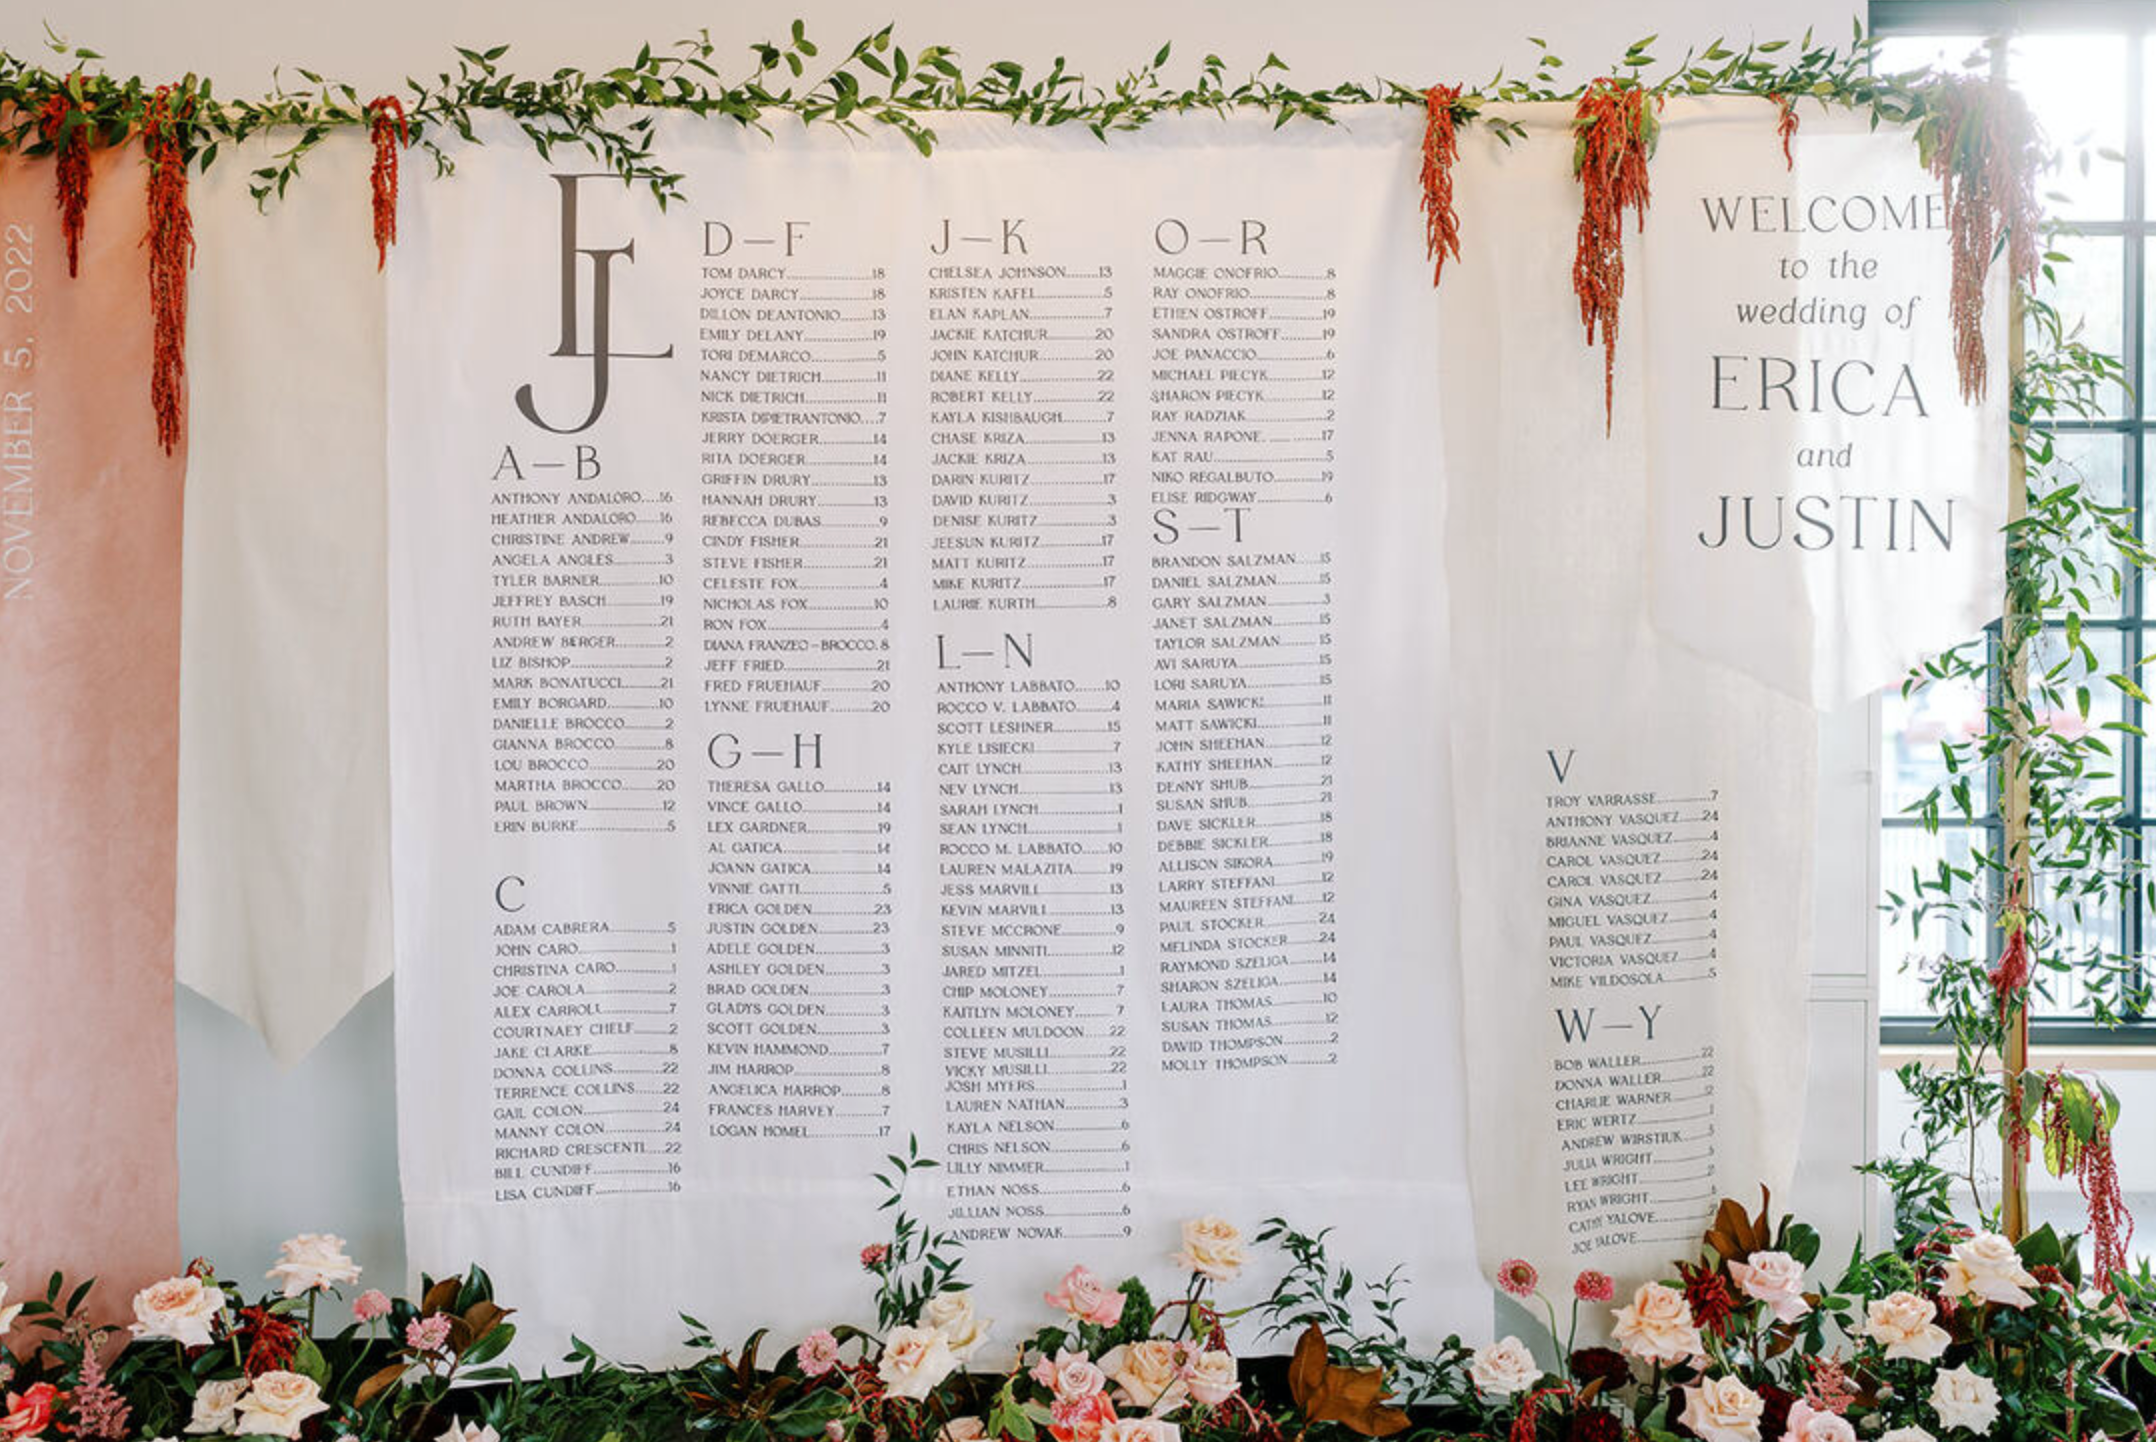 NOVEMBER 5, 2022
A—B
ANTHONY ANDALORO....16
HEATHER ANDALORO....16
CHRISTINE ANDREW....9
ANGELA ANGLES....3
TYLER BARNER....10
JEFFREY BASCH....19
RUTH BAYER....21
ANDREW BERGER....2
LIZ BISHOP....2
MARK BONATUCCI....21
EMILY BORGARD....10
DANIELLE BROCCO....2
GIANNA BROCCO....8
LOU BROCCO....20
MARTHA BROCCO....20
PAUL BROWN....12
ERIN BURKE....5
C
ADAM CABRERA....5
JOHN CARO....1
CHRISTINA CARO....1
JOE CAROLA....2
ALEX CARROLL....7
COURTNAEY CHELF....2
JAKE CLARKE....8
DONNA COLLINS....22
TERRENCE COLLINS....22
GAIL COLON....24
MANNY COLON....24
RICHARD CRESCENTI....22
BILL CUNDIFF....16
LISA CUNDIFF....16
D—F
TOM DARCY....18
JOYCE DARCY....18
DILLON DEANTONIO....13
EMILY DELANY....19
TORI DEMARCO....5
NANCY DIETRICH....11
NICK DIETRICH....11
KRISTA DIPIETRANTONIO....7
JERRY DOERGER....14
RITA DOERGER....14
GRIFFIN DRURY....13
HANNAH DRURY....13
REBECCA DUBAS....9
CINDY FISHER....21
STEVE FISHER....21
CELESTE FOX....4
NICHOLAS FOX....10
RON FOX....4
DIANA FRANZEO-BROCCO.8
JEFF FRIED....21
FRED FRUEHAUF....20
LYNNE FRUEHAUF....20
G—H
THERESA GALLO....14
VINCE GALLO....14
LEX GARDNER....19
AL GATICA....14
JOANN GATICA....14
VINNIE GATTI....5
ERICA GOLDEN....23
JUSTIN GOLDEN....23
ADELE GOLDEN....3
ASHLEY GOLDEN....3
BRAD GOLDEN....3
GLADYS GOLDEN....3
SCOTT GOLDEN....3
KEVIN HAMMOND....7
JIM HARROP....8
ANGELICA HARROP....8
FRANCES HARVEY....7
LOGAN HOMEL....17
J—K
CHELSEA JOHNSON....13
KRISTEN KAFEL....5
ELAN KAPLAN....7
JACKIE KATCHUR....20
JOHN KATCHUR....20
DIANE KELLY....22
ROBERT KELLY....22
KAYLA KISHBAUGH....7
CHASE KRIZA....13
JACKIE KRIZA....13
DARIN KURITZ....17
DAVID KURITZ....3
DENISE KURITZ....3
JEESUN KURITZ....17
MATT KURITZ....17
MIKE KURITZ....17
LAURIE KURTH....8
L—N
ANTHONY LABBATO....10
ROCCO V. LABBATO....4
SCOTT LESHNER....15
KYLE LISIECKI....7
CAIT LYNCH....13
NEV LYNCH....13
SARAH LYNCH....1
SEAN LYNCH....1
ROCCO M. LABBATO....10
LAUREN MALAZITA....19
JESS MARVILL....13
KEVIN MARVILL....13
STEVE MCCRONE....9
SUSAN MINNITI....12
JARED MITZEL....1
CHIP MOLONEY....7
KAITLYN MOLONEY....7
COLLEEN MULDOON....22
STEVE MUSILLI....22
VICKY MUSILLI....22
JOSH MYERS....1
LAUREN NATHAN....3
KAYLA NELSON....6
CHRIS NELSON....6
LILLY NIMMER....1
ETHAN NOSS....6
JILLIAN NOSS....6
ANDREW NOVAK....9
O—R
MAGGIE ONOFRIO....8
RAY ONOFRIO....8
ETHEN OSTROFF....19
SANDRA OSTROFF....19
JOE PANACCIO....6
MICHAEL PIECYK....12
SHARON PIECYK....12
RAY RADZIAK....2
JENNA RAPONE....17
KAT RAU....5
NIKO REGALBUTO....19
ELISE RIDGWAY....6
S—T
BRANDON SALZMAN....15
DANIEL SALZMAN....15
GARY SALZMAN....3
JANET SALZMAN....15
TAYLOR SALZMAN....15
AVI SARUYA....15
LORI SARUYA....15
MARIA SAWICKI....11
MATT SAWICKI....11
JOHN SHEEHAN....12
KATHY SHEEHAN....12
DENNY SHUB....21
SUSAN SHUB....21
DAVE SICKLER....18
DEBBIE SICKLER....18
ALLISON SIKORA....19
LARRY STEFFANI....12
MAUREEN STEFFANI....12
PAUL STOCKER....24
MELINDA STOCKER....24
RAYMOND SZELIGA....14
SHARON SZELIGA....14
LAURA THOMAS....10
SUSAN THOMAS....12
DAVID THOMPSON....2
MOLLY THOMPSON....2
WELCOME
to the
wedding of
ERICA
and
JUSTIN
V
TROY VARRASSE....7
ANTHONY VASQUEZ....24
BRIANNE VASQUEZ....4
CAROL VASQUEZ....24
CAROL VASQUEZ....24
GINA VASQUEZ....4
MIGUEL VASQUEZ....4
PAUL VASQUEZ....4
VICTORIA VASQUEZ....4
MIKE VILDOSOLA....5
W—Y
BOB WALLER....22
DONNA WALLER....22
CHARLIE WARNER....12
ERIC WERTZ....1
ANDREW WIRSTIUK
JULIA WRIGHT
LEE WRIGHT
RYAN WRIGHT
CATHY YALOVE
JOE YALOVE